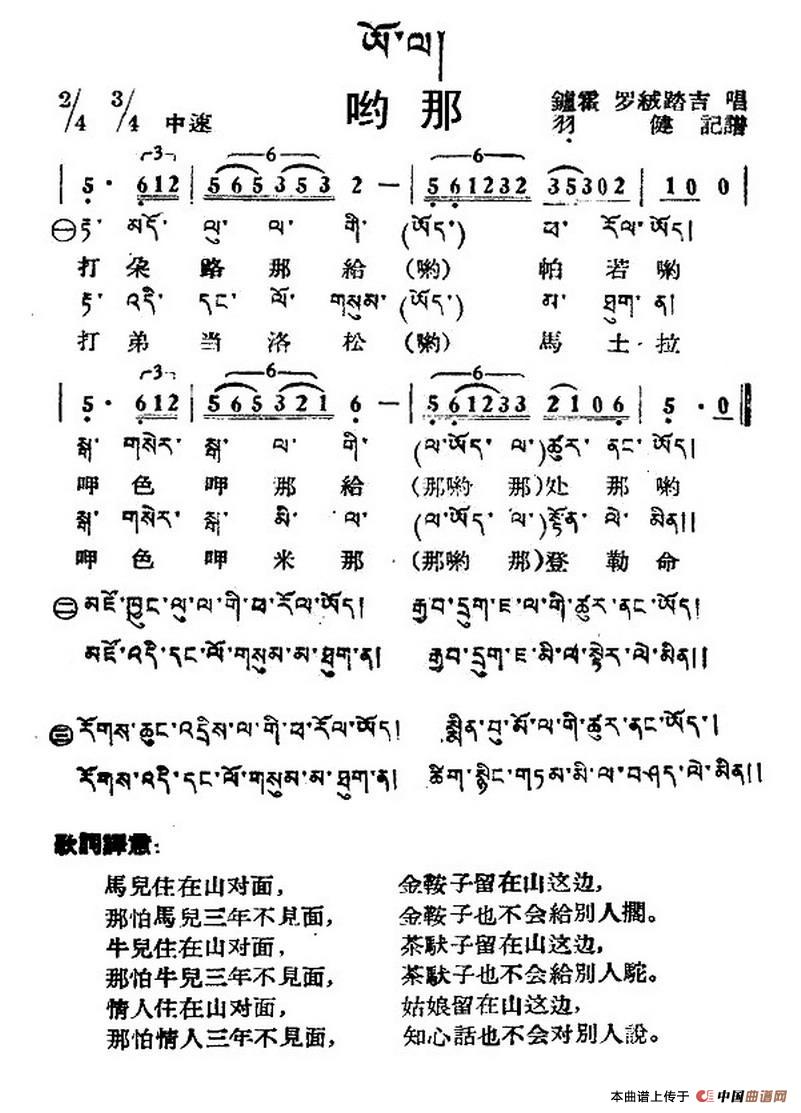 ཨོ་ལ།
哟那
2/4 3/4 中速 鑪霍 罗絨踏吉 唱
羽 健 記譜
5· 612 | 565353 2 — | 561232 35302 | 100 |
㊀ རྟ་ མདོ་ ལུ་ ལ་ གི་ (ཨོད་) ཕ་ རོལ་ཨོད།
打 朵 路 那 給 (喲) 帕 若 喲
རྟ་ འདི་ དང་ ལོ་ གསུམ་ (ཨོད་) མ་ ཐུག་ ན།
打 弟 当 洛 松 (喲) 馬 土 拉
5· 612 | 565321 6 — | 561233 2106 | 5·0 ‖
སྒ་ གསེར་ སྒ་ ལ་ གི་ (ལ་ཨོད་ ལ་) ཚུར་ ནང་ ཨོད།
呷 色 呷 那 給 (那喲 那) 处 那 喲
སྒ་ གསེར་ སྒ་ མི་ ལ་ (ལ་ཨོད་ ལ་) སྟོན་ ལེ་ མིན།།
呷 色 呷 米 那 (那喲 那) 登 勒 命
㊁ མཛོ་ཁྱུང་ལུ་ལ་གི་ཕ་རོལ་ཨོད། རྒྱབ་དྲུག་ཇ་ལ་གི་ཚུར་ནང་ཨོད།
མཛོ་འདི་དང་ལོ་གསུམ་མ་ཐུག་ན། རྒྱབ་དྲུག་ཇ་མི་ལ་སྟེར་ལེ་མིན།།
㊂ རོགས་ཆུང་འདྲིས་ལ་གི་ཕ་རོལ་ཨོད། སྨིན་བུ་མོ་ལ་གི་ཚུར་ནང་ཨོད་།
རོགས་འདི་དང་ལོ་གསུམ་མ་ཐུག་ན། ཚིག་སྙིང་གཏམ་མི་ལ་བཤད་ལེ་མིན།།
歌詞譯意:
馬兒住在山对面， 金鞍子留在山这边，
那怕馬兒三年不見面， 金鞍子也不会給別人擱。
牛兒住在山对面， 茶馱子留在山这边，
那怕牛兒三年不見面， 茶馱子也不会給別人駝。
情人住在山对面， 姑娘留在山这边，
那怕情人三年不見面， 知心話也不会对別人說。
本曲谱上传于 中国曲谱网